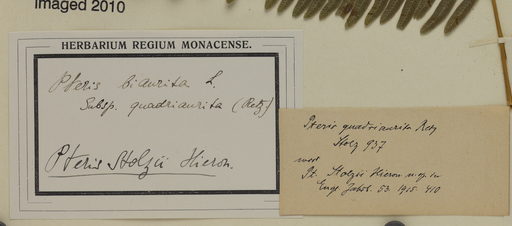 Imaged 2010
HERBARIUM REGIUM MONACENSE.
Pteris biaurita L.
Subsp. quadriaurita (Retz)
Pteris Stolzii Hieron.
Pteris quadriaurita Retz
Stolz 937
Pt. Stolzii Hieron n. sp. in
Engl. Jahrb. 53. 1915 410